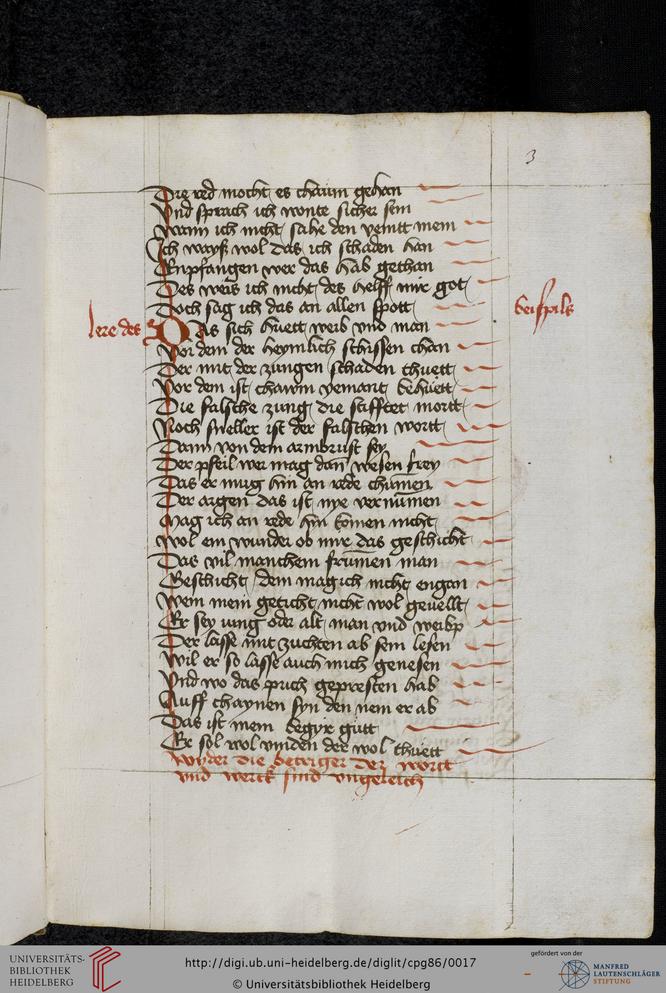 3
Die red mocht es chaum gehan
Vnd sprach ich wonte sicher sein
Wann ich nicht sahe den veintt mein
Ich wayß wol das ich schaden han
Enpfangen wer das hab gethan
Des weis ich nicht des helff mir got
Doch sag ich das an allen spott
lere des beispils
Das sich huett weib vnd man
Vor dem der heymlich schissen chan
Der mit der zungen schaden thuett
Vor dem ist chawm yemant behuett
Die falsche zung die stifftet mortt
Noch sneller ist der falschen wortt
Dann von dem armbrust sey
Der pfeil wer mag dan wesen frey
Das er mug hin an rede chumen
Der argen das ist nye vernumen
Mag ich an rede hin komen nicht
Wol ein wunder ob mir das geschicht
Das vil manchem frumen man
Geschicht dem mag ich nicht engan
Wem mein geticht nicht wol geuellt
Er sey iung oder alt man vnd weibp
Der lasse mit zuchten ab sein lesen
Wil er so lasse auch mich genesen
Vnd wo das puch gepresten hab
Auff chaynen syn den nem er ab
Das ist mein begyr gutt
Er sol wol vinden der wol thuett
wyder die betriger der wortt
vnd werck sind vngeleich
UNIVERSITÄTS-
BIBLIOTHEK
HEIDELBERG
http://digi.ub.uni-heidelberg.de/diglit/cpg86/0017
© Universitätsbibliothek Heidelberg
gefördert von der
MANFRED
LAUTENSCHLÄGER
STIFTUNG